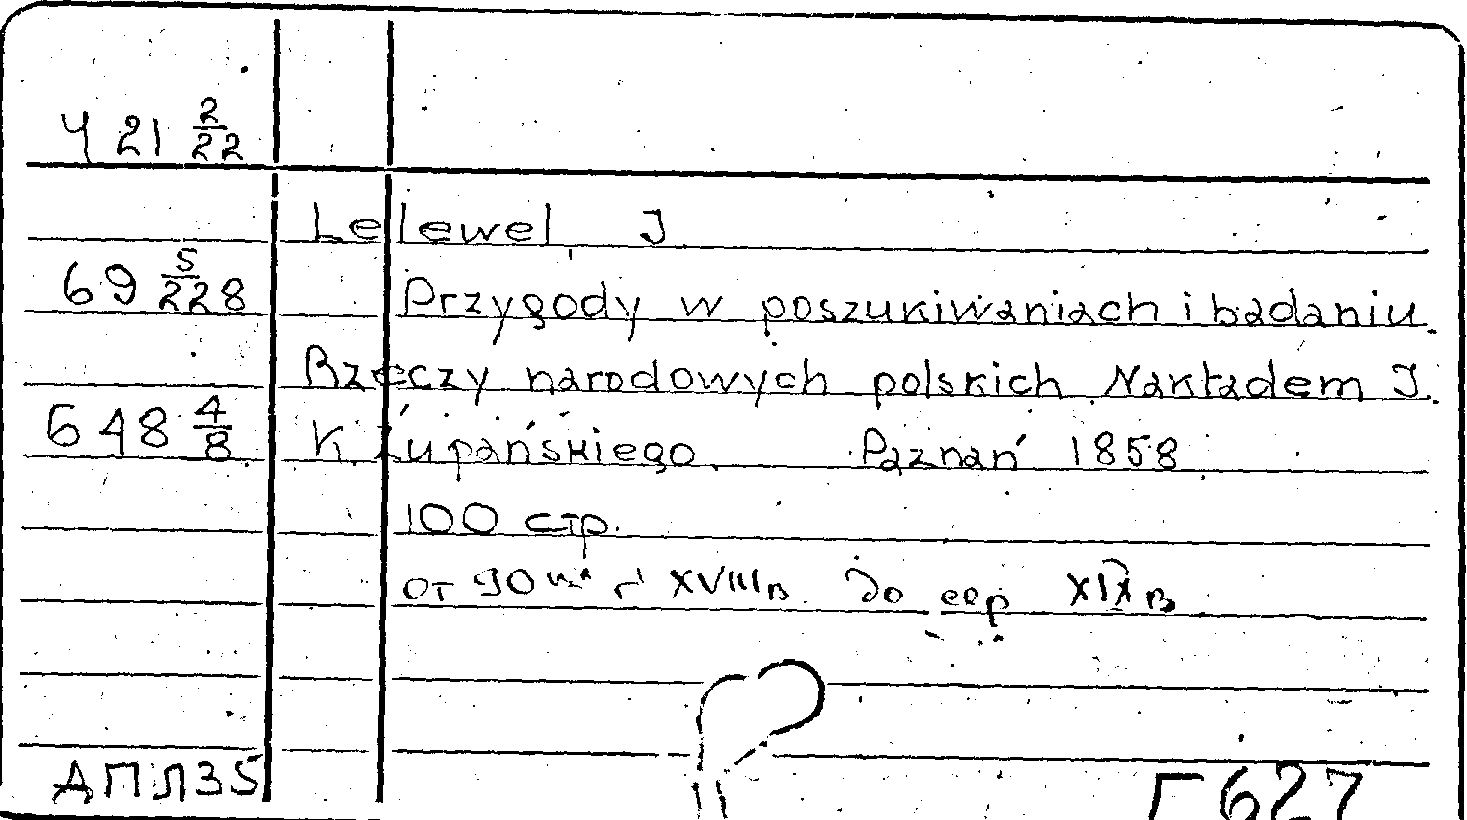 Ч 21 2/22
Lelewel J
69 5/228
Przygody w poszukiwaniach i badaniu
Rzeczy narodowych polskich Nakładem J.
648 4/8
K. Żupańskiego. Poznań 1858
100 стр.
от 90х г XVIII в. до сер XIX в.
ДПЛ35
Г627